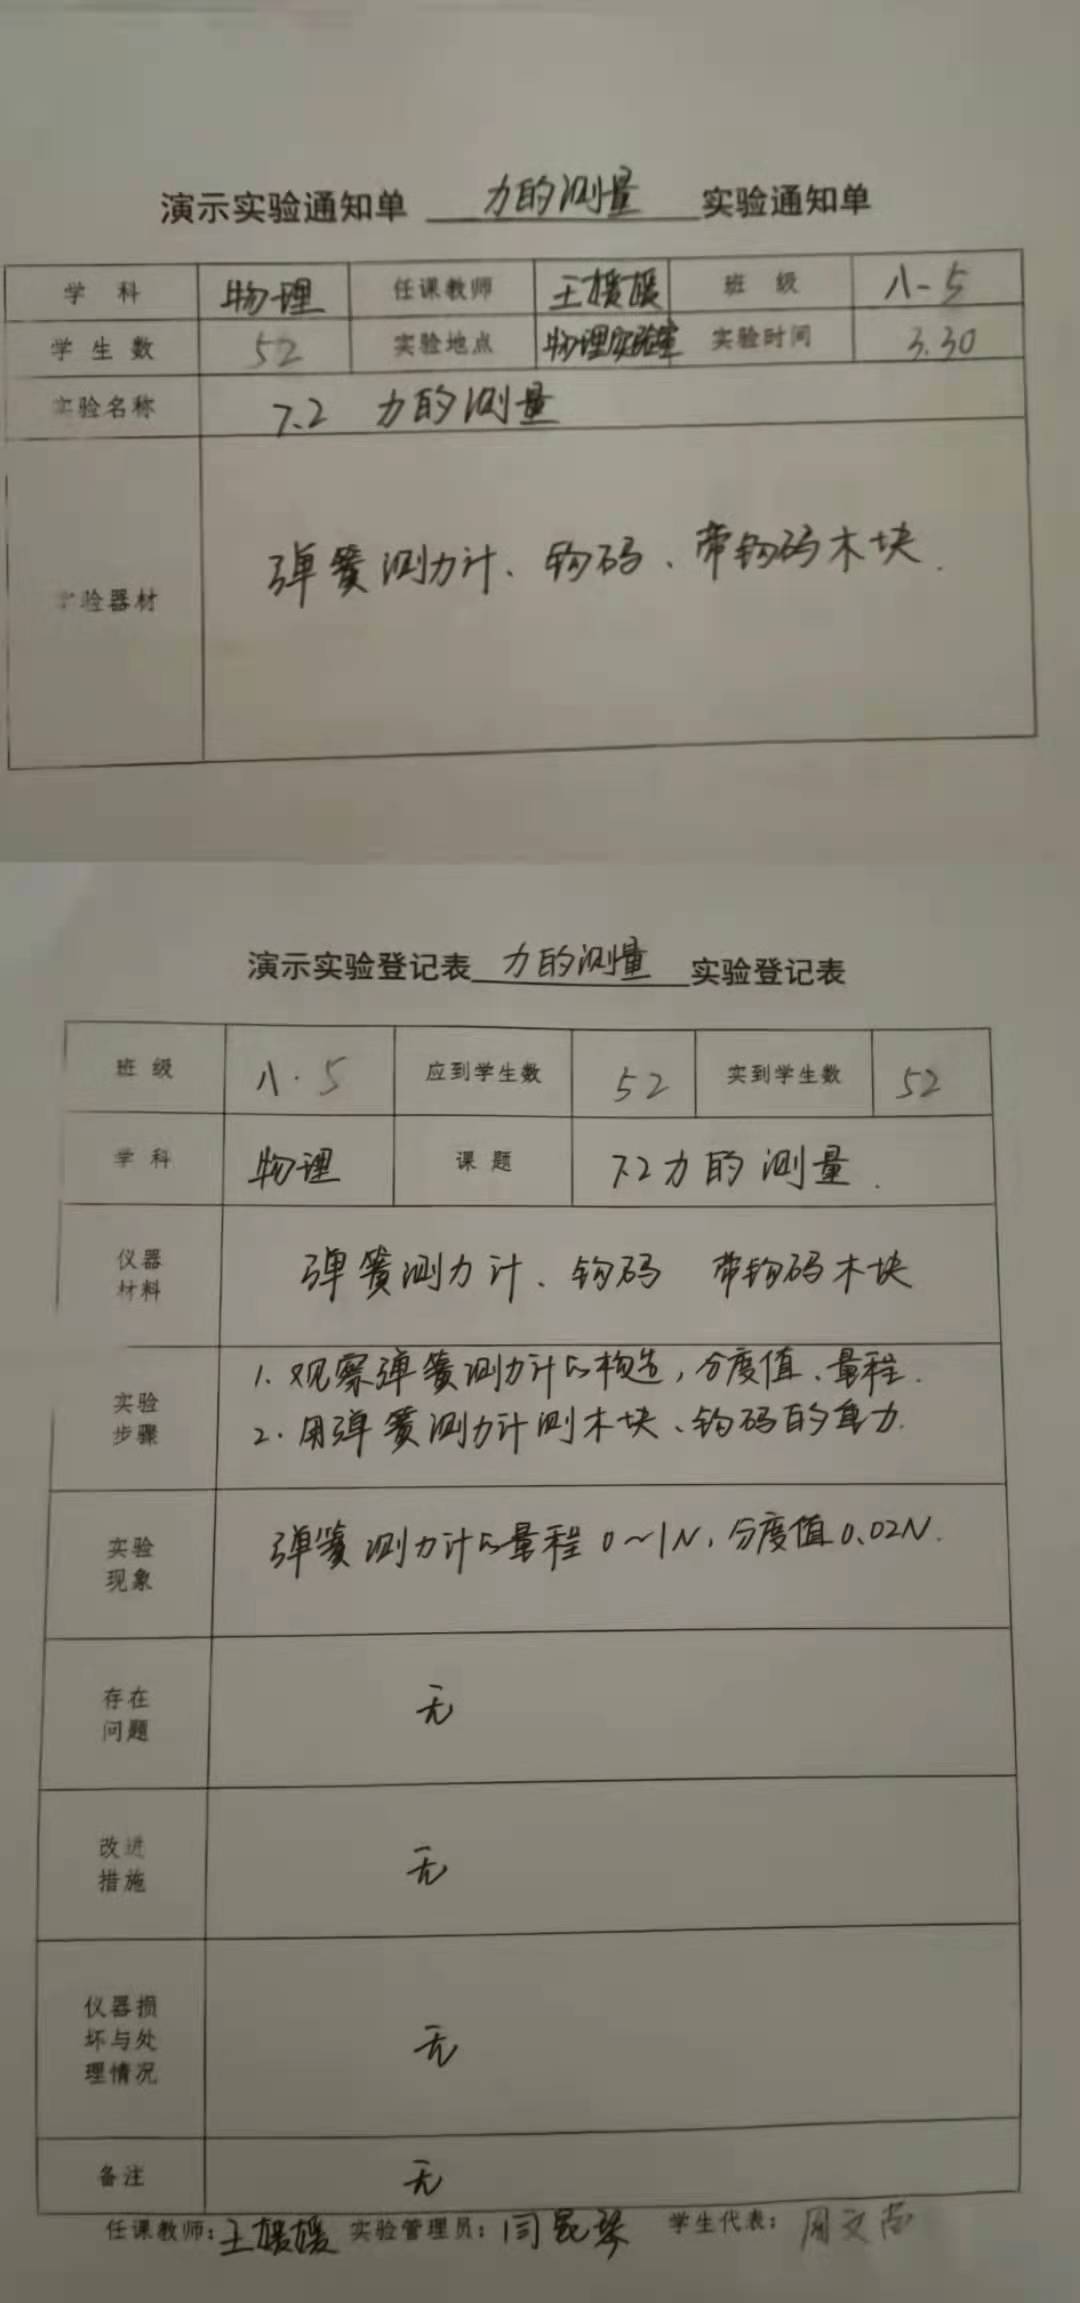 演示实验通知单 力的测量 实验通知单
学 科 物理 任课教师 王媛媛 班 级 八-5
学生数 52 实验地点 物理实验室 实验时间 3.30
实验名称 7.2 力的测量
实验器材 弹簧测力计、钩码、带钩码木块.
演示实验登记表 力的测量 实验登记表
班 级 八.5 应到学生数 52 实到学生数 52
学 科 物理 课 题 7.2力的测量.
仪器
材料
弹簧测力计、钩码 带钩码木块
实验
步骤
1. 观察弹簧测力计的构造,分度值、量程.
2. 用弹簧测力计测木块、钩码的重力.
实验
现象
弹簧测力计的量程0~1N,分度值0.02N.
存在
问题
无
改进
措施
无
仪器损
坏与处
理情况
无
备注 无
任课教师:王媛媛 实验管理员:闫 学生代表:周文